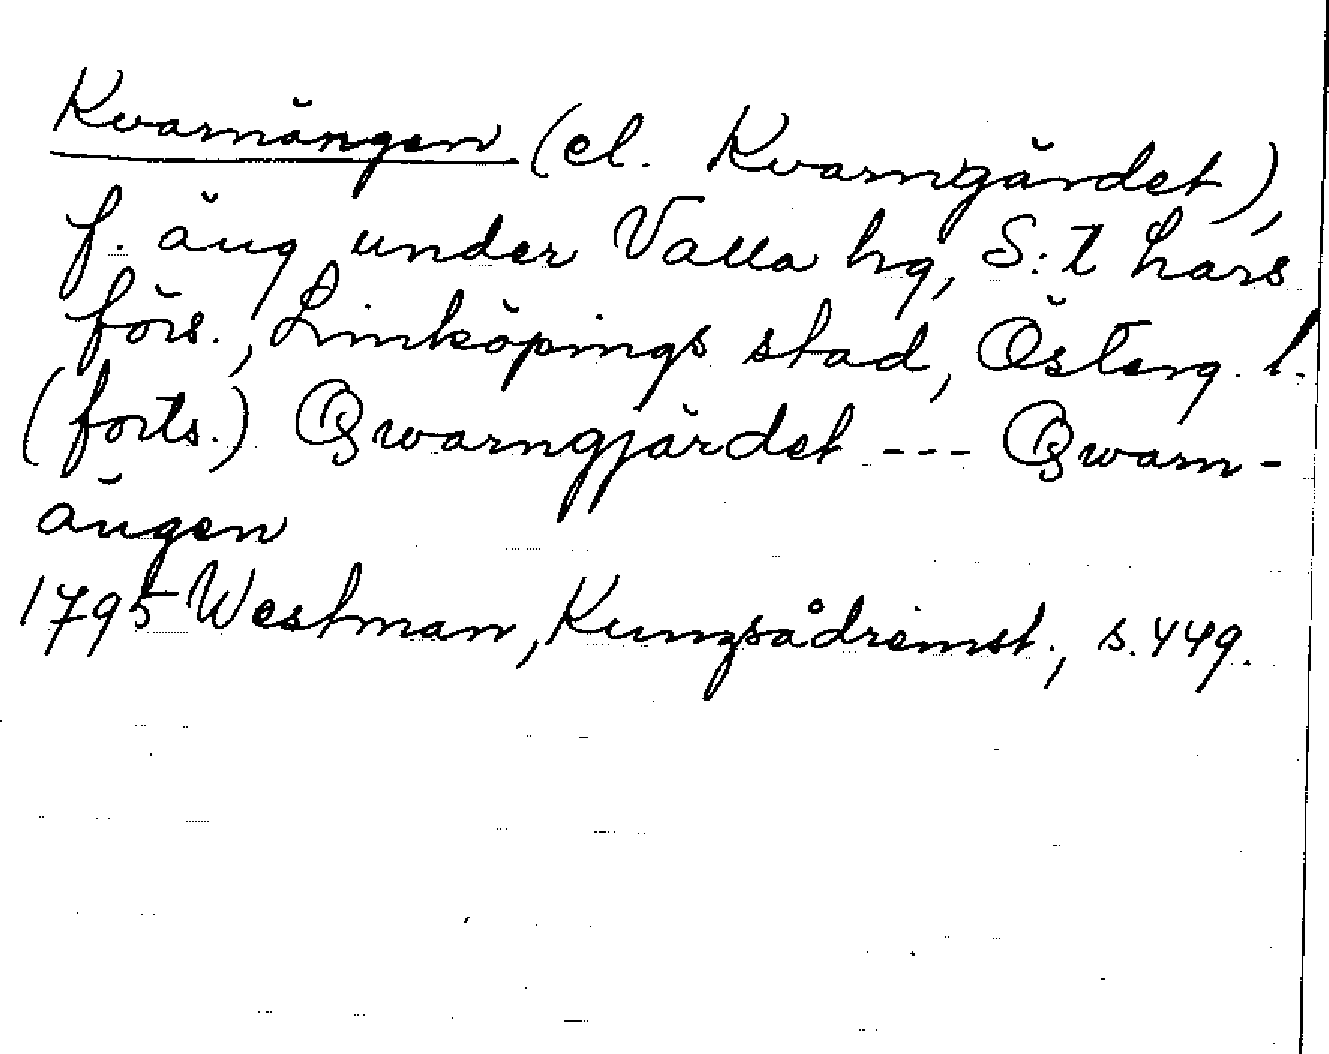 Kvarnängen (el. Kvarngärdet),
f. äng under Valla hg, S:t Lars
förs., Linköpings stad, Österg. l.
(forts.) Qwarngjärdet --- Qwarn-
ängen
1795 Westman, Kungsådreinst., s. 449.